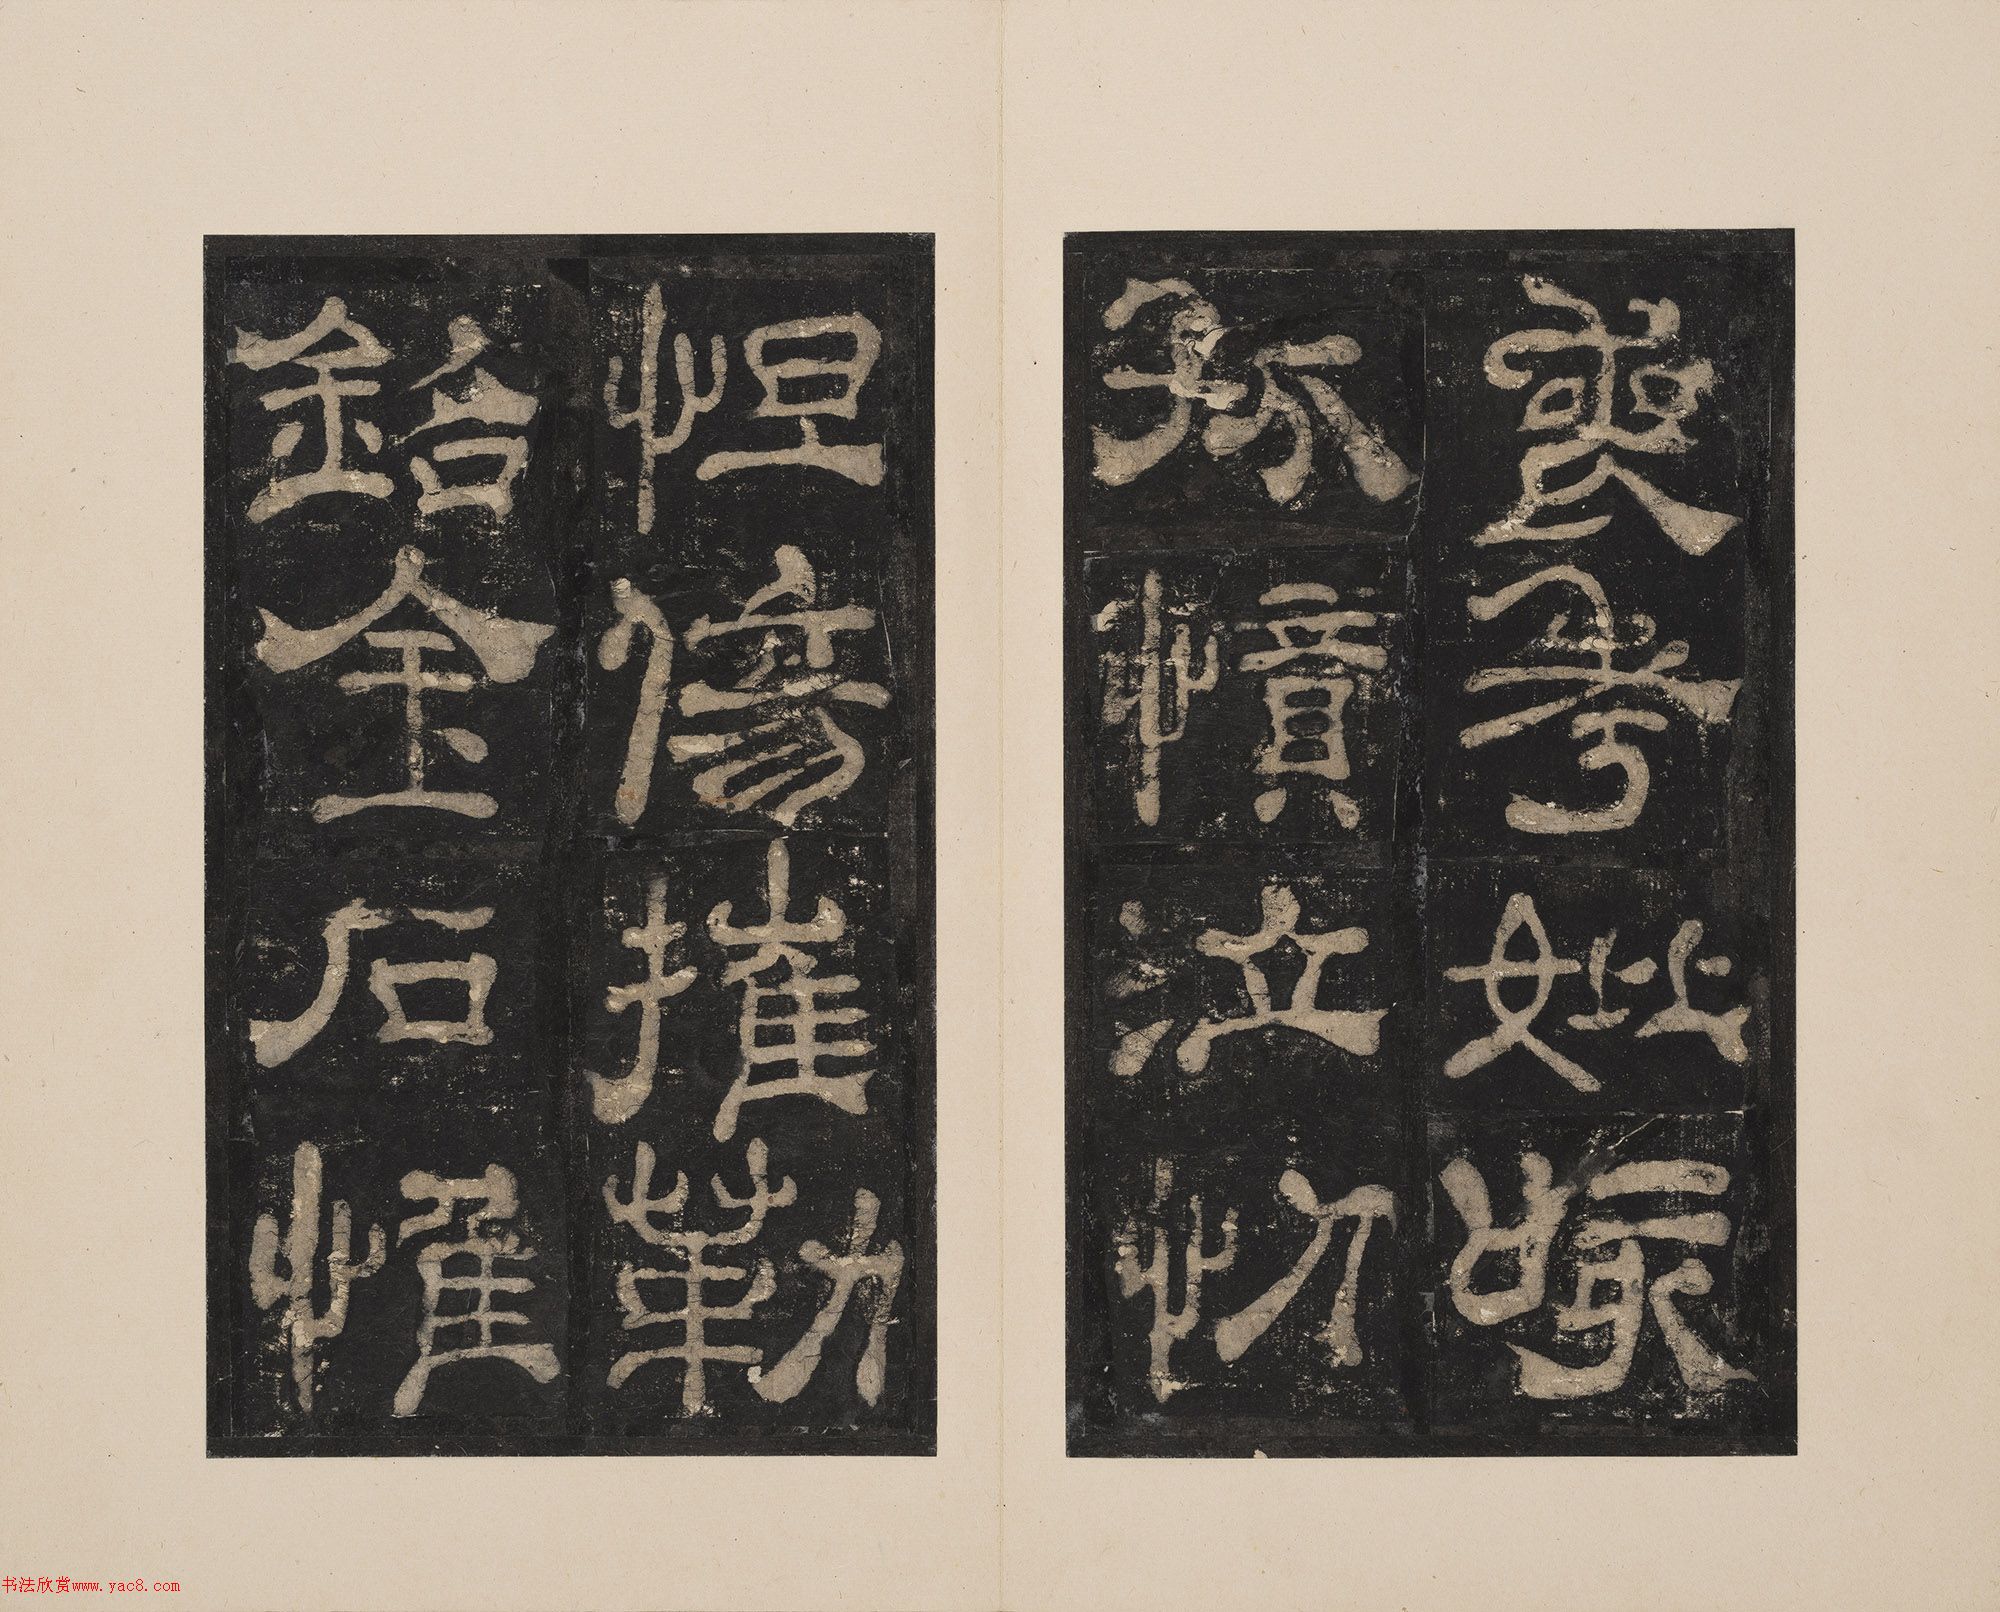 喪考妣咳
孤憤泣忉
怛傷摧勒
銘金石惟
书法欣赏www.yac8.com